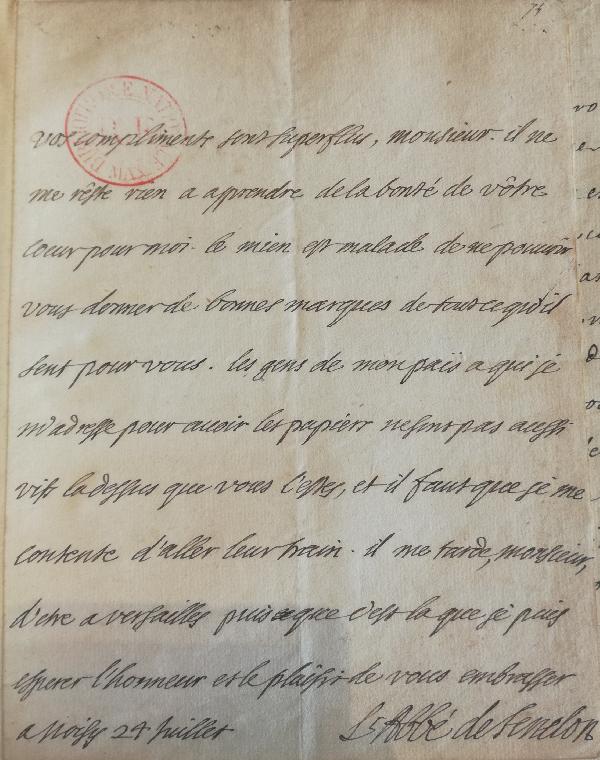 74
BIBLIOTHEQUE NATIONALE MAN
vos compliments sont superflus, monsieur. il ne
me rêste rien a apprendre de la bonté de vôtre
coeur pour moi. le mien est malade de ne pouvoir
vous donner de bonnes marques de tout ce qu'il
sent pour vous. les gens de mon païs a qui je
m'adresse pour avoir les papiers ne sont pas aussi
vifs la dessus que vous l'estes, et il faut que je me
contente d'aller leur train. il me tarde, monsieur,
d'etre a versailles puisque c'est la que je puis
esperer l'honneur et le plaisir de vous embrasser
a Noisy 24 Juillet L'Abbé de Fenelon